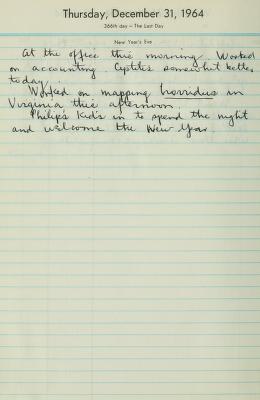 Thursday, December 31, 1964
366th day – The Last Day
New Year's Eve
At the office this morning. Worked
on accounting. Cystitis somewhat better
today.
Worked on mapping horridus in
Virginia this afternoon.
Philip's kids in to spend the night
and welcome the New Year.